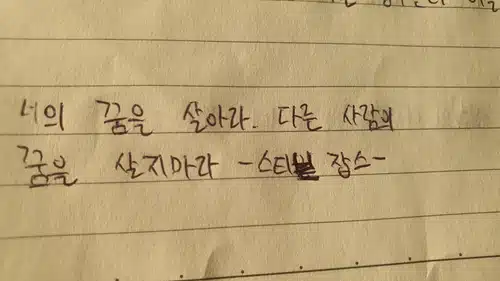 너의 꿈을 살아라. 다른 사람의
꿈을 살지마라 -스티브 잡스-